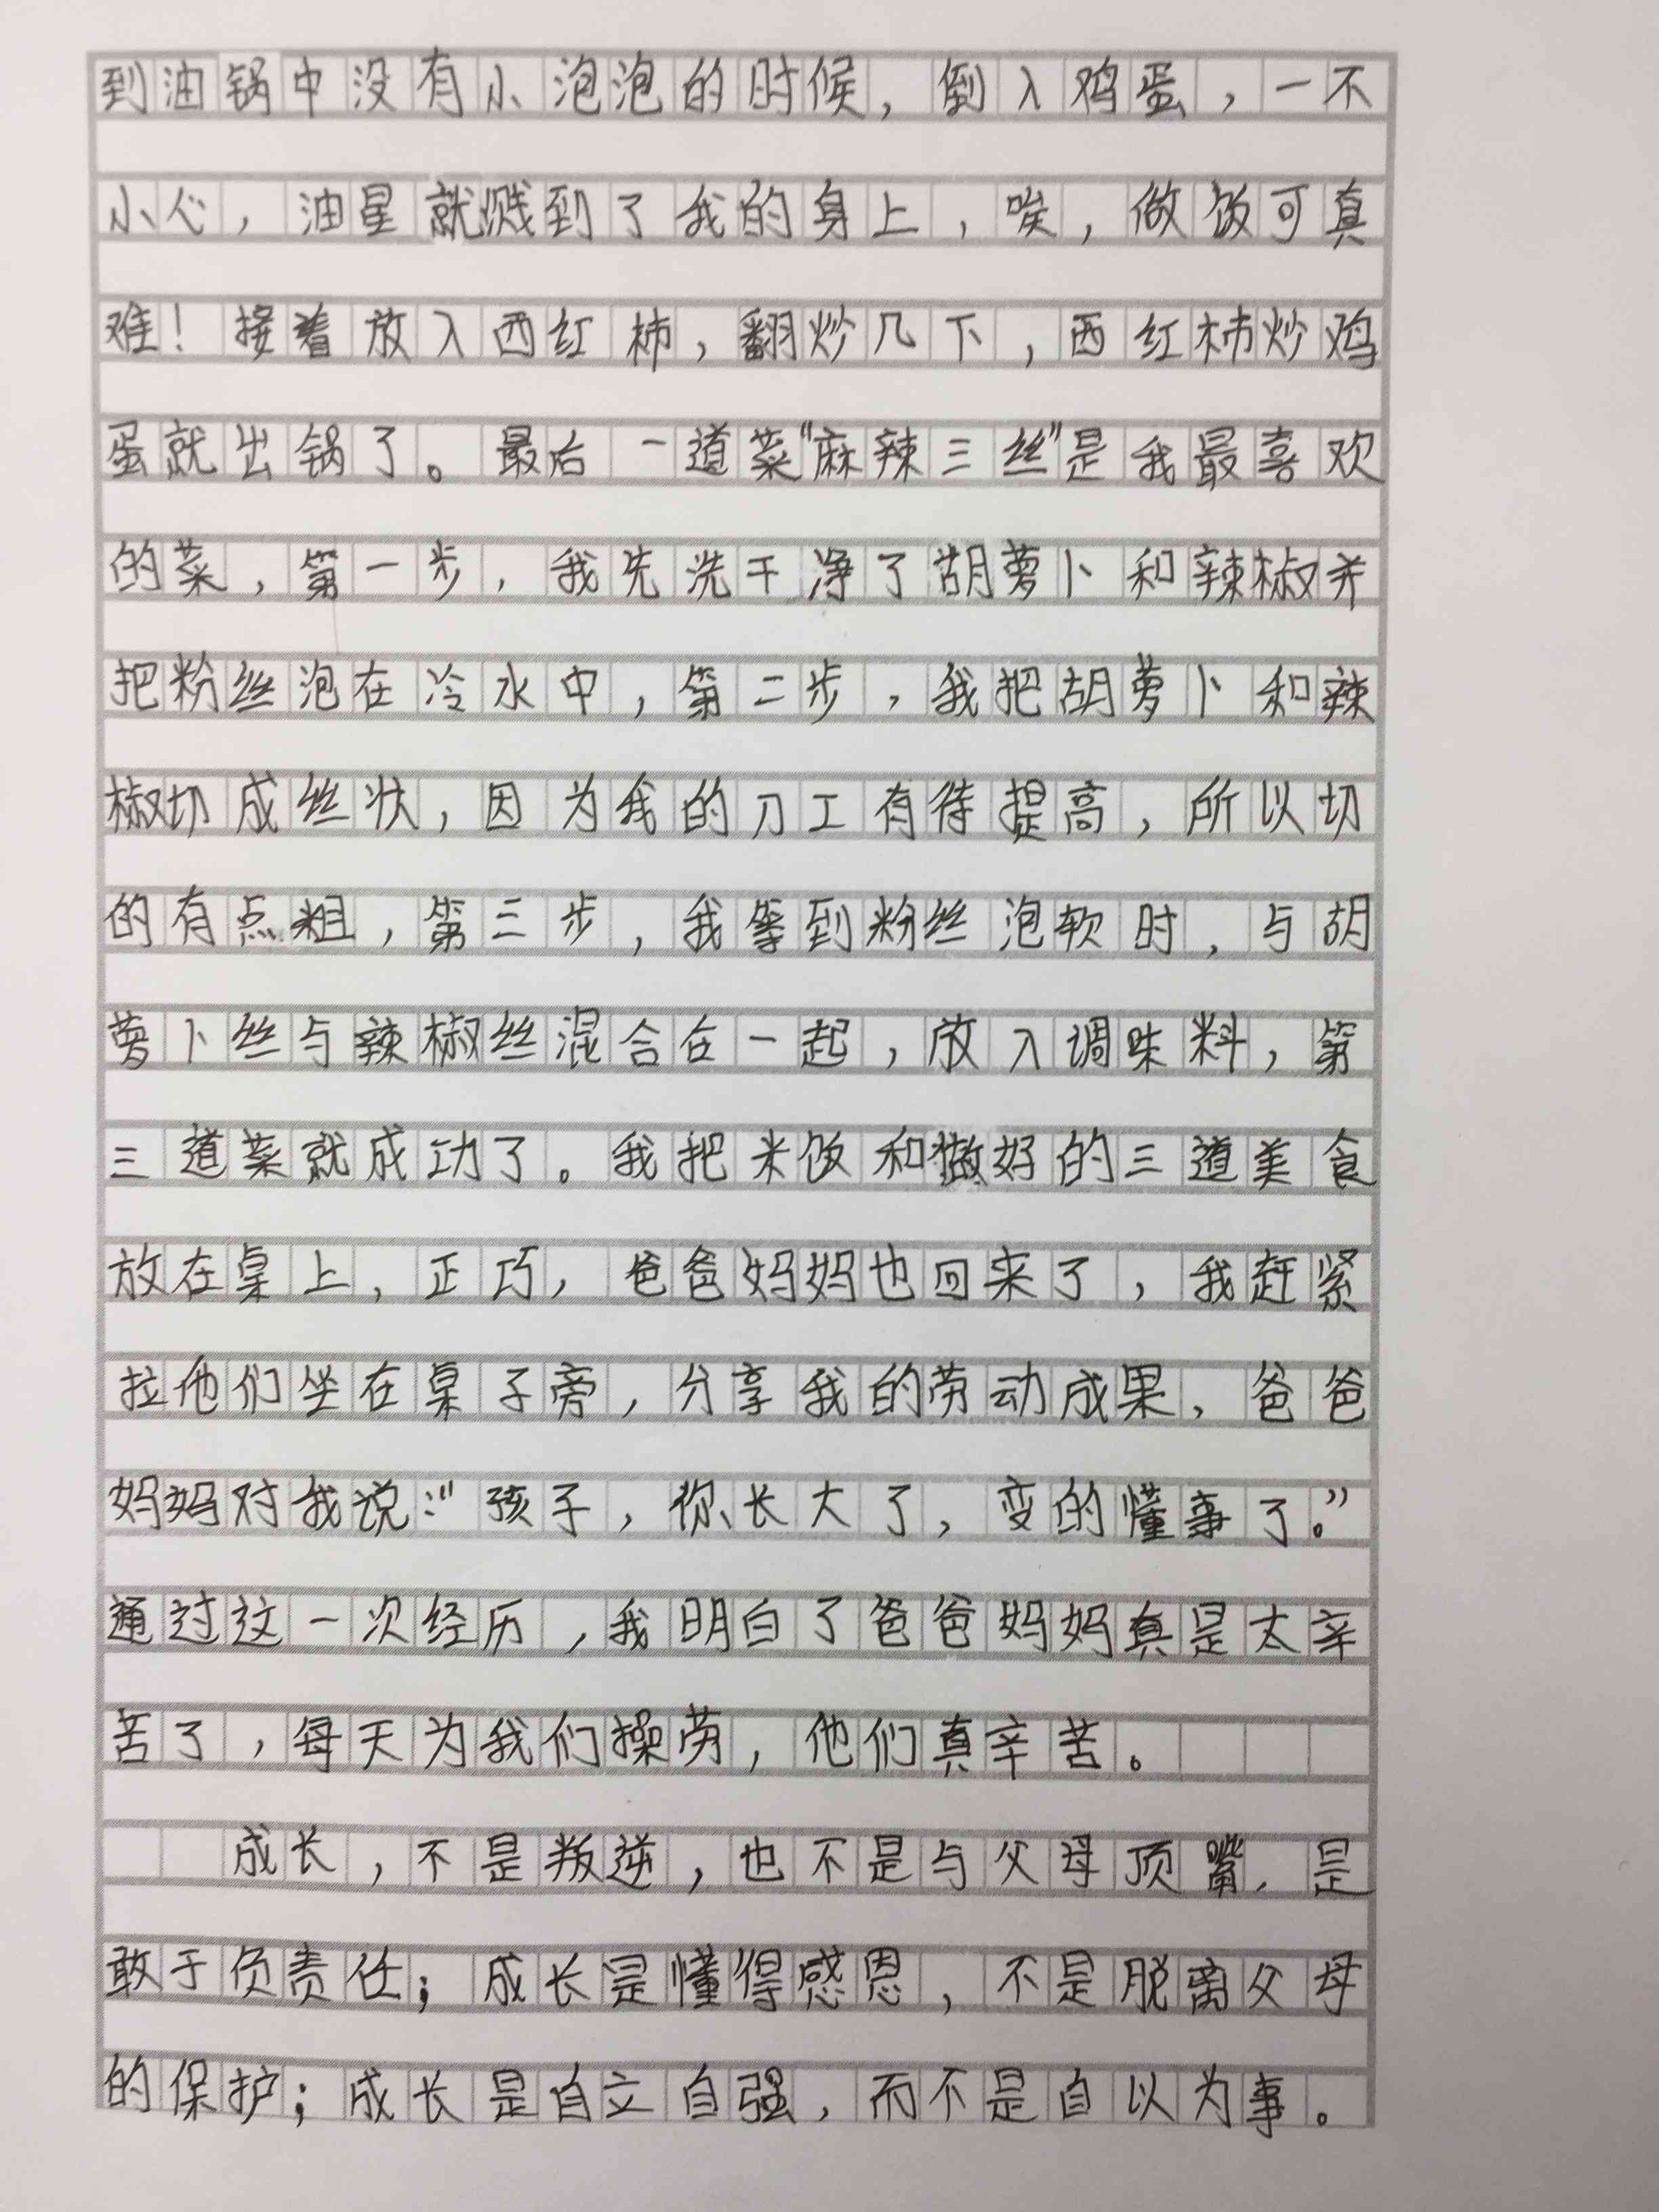 到油锅中没有小泡泡的时候，倒入鸡蛋，一不
小心，油星就溅到了我的身上，唉，做饭可真
难！接着放入西红柿，翻炒几下，西红柿炒鸡
蛋就出锅了。最后一道菜“麻辣三丝”是我最喜欢
的菜，第一步，我先洗干净了胡萝卜和辣椒并
把粉丝泡在冷水中，第二步，我把胡萝卜和辣
椒切成丝状，因为我的刀工有待提高，所以切
的有点粗，第三步，我等到粉丝泡软时，与胡
萝卜丝与辣椒丝混合在一起，放入调味料，第
三道菜就成功了。我把米饭和做好的三道美食
放在桌上，正巧，爸爸妈妈也回来了，我赶紧
拉他们坐在桌子旁，分享我的劳动成果，爸爸
妈妈对我说：“孩子，你长大了，变的懂事了。”
通过这一次经历，我明白了爸爸妈妈真是太辛
苦了，每天为我们操劳，他们真辛苦。
成长，不是叛逆，也不是与父母顶嘴，是
敢于负责任；成长是懂得感恩，不是脱离父母
的保护；成长是自立自强，而不是自以为事。